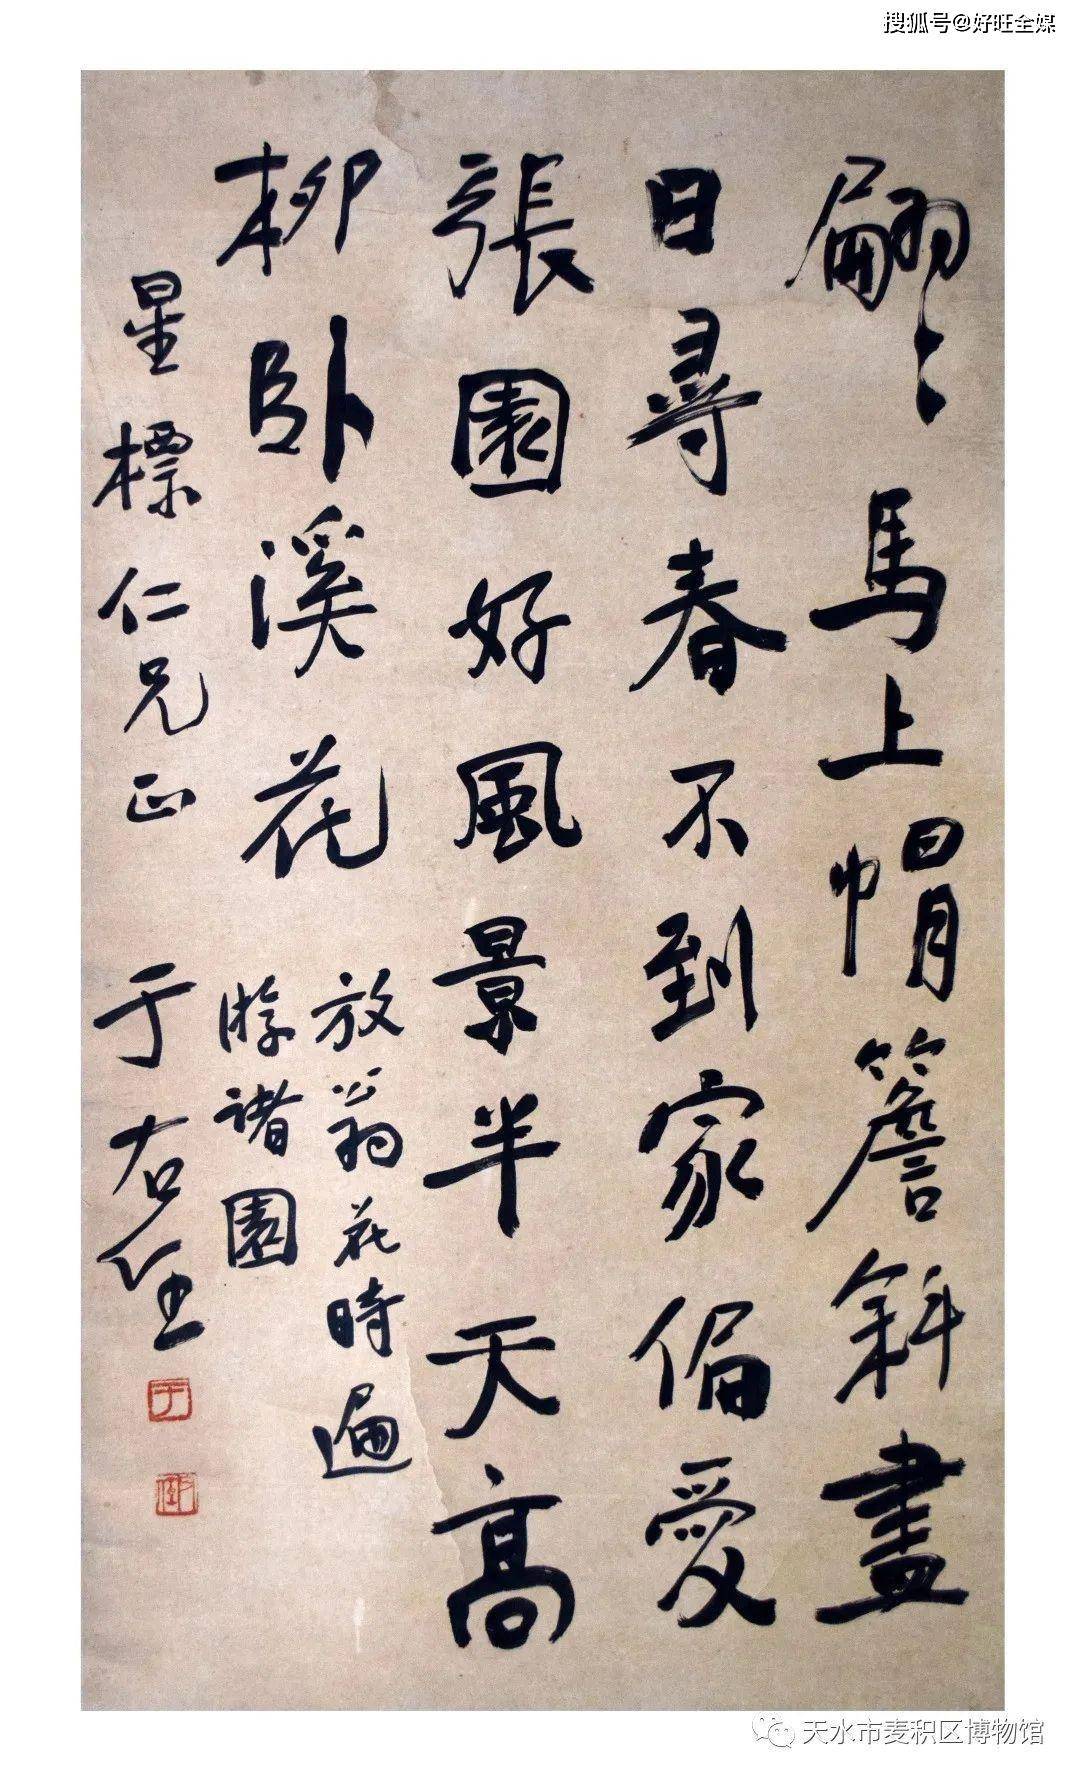 搜狐号@好旺全媒
翩〻馬上帽簷斜盡
日尋春不到家偏愛
張園好風景半天高
柳卧溪花
放翁花時遍
游諸園
星標仁兄正
于右任
天水市麦积区博物馆